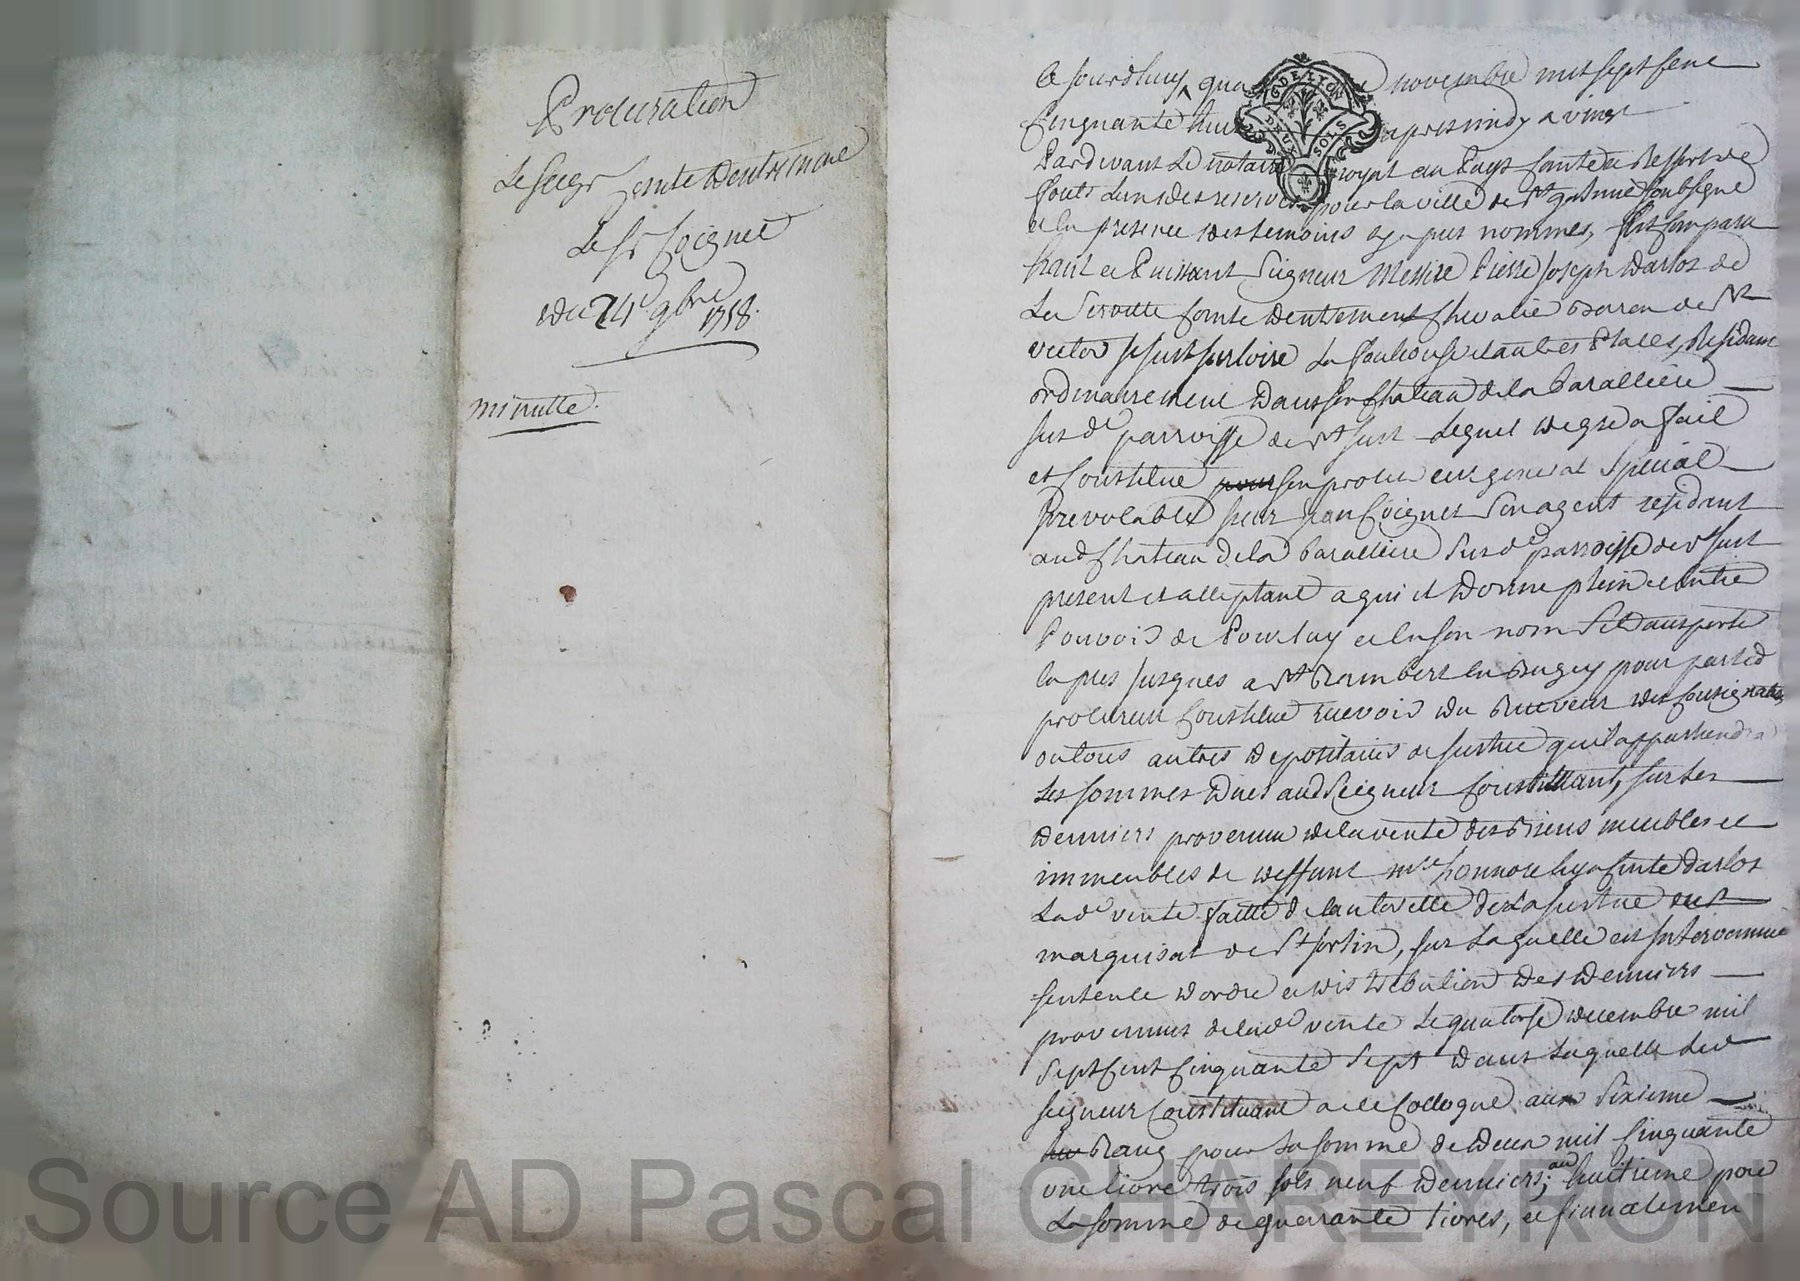 Procuration
Le seigr comte Dentremont
Le Sr Coignet
du 24e 9bre 1758.
minutte.
GDE LYON
DEUX SOLS
Ce jourdhuy novembre mil sept cent
Cinquante huit apres midy
Pardevant Le notaire royal au Pays Comté et Ressort de
pour la ville de St soubsigné
et en presence des temoins apres nommés, fut comparu
haut et Puissant Seigneur Messire Pierre Joseph Darloz de
La Servette Comte Dentremont Chevalié Baron de St
victor St just sur loire La fouliouse et autres Places, Residant
ordinairement Dans son Chateau de la Baralliere
sus de parroisse de St just Lequel de gré a fait
et Constitué pour son procureur general Special
Irrevocable sieur jean Coignet Son agent residant
aud Chateau de la Baralliere Sus de parroisse de St just
present et acceptant a qui il Donne plein et entié
Pouvoir de Pour luy et en son nom se Transporté
jusques a St Rambert en Bugey pour par led
procureur Constitué recevoir du Receveur des Consignations
ou tous autres Depositaires de justice quil appartiendra
Les sommes Dues aud Seigneur Constituant, sur Les
Denniers provenus de la vente des Biens meubles et
immeubles de deffunt mre honnoré hyacinte Darloz
La de vente faitte de lautorité de La justice du
marquisat de St sorlin, sur Laquelle est Intervennue
sentence Dordre et Distribution Des Denniers
provennus de lade vente Le quatorse decembre mil
Sept Cent Cinquante Sept Dans Laquelle led
seigneur Constituant a eté Colloqué au Sixieme
Rang pour La somme de Deux mil Cinquante
une livre trois sols neuf Denniers; au huitieme pour
La somme de quarrante livres, et finnalement
Source AD Pascal CHAREYRON